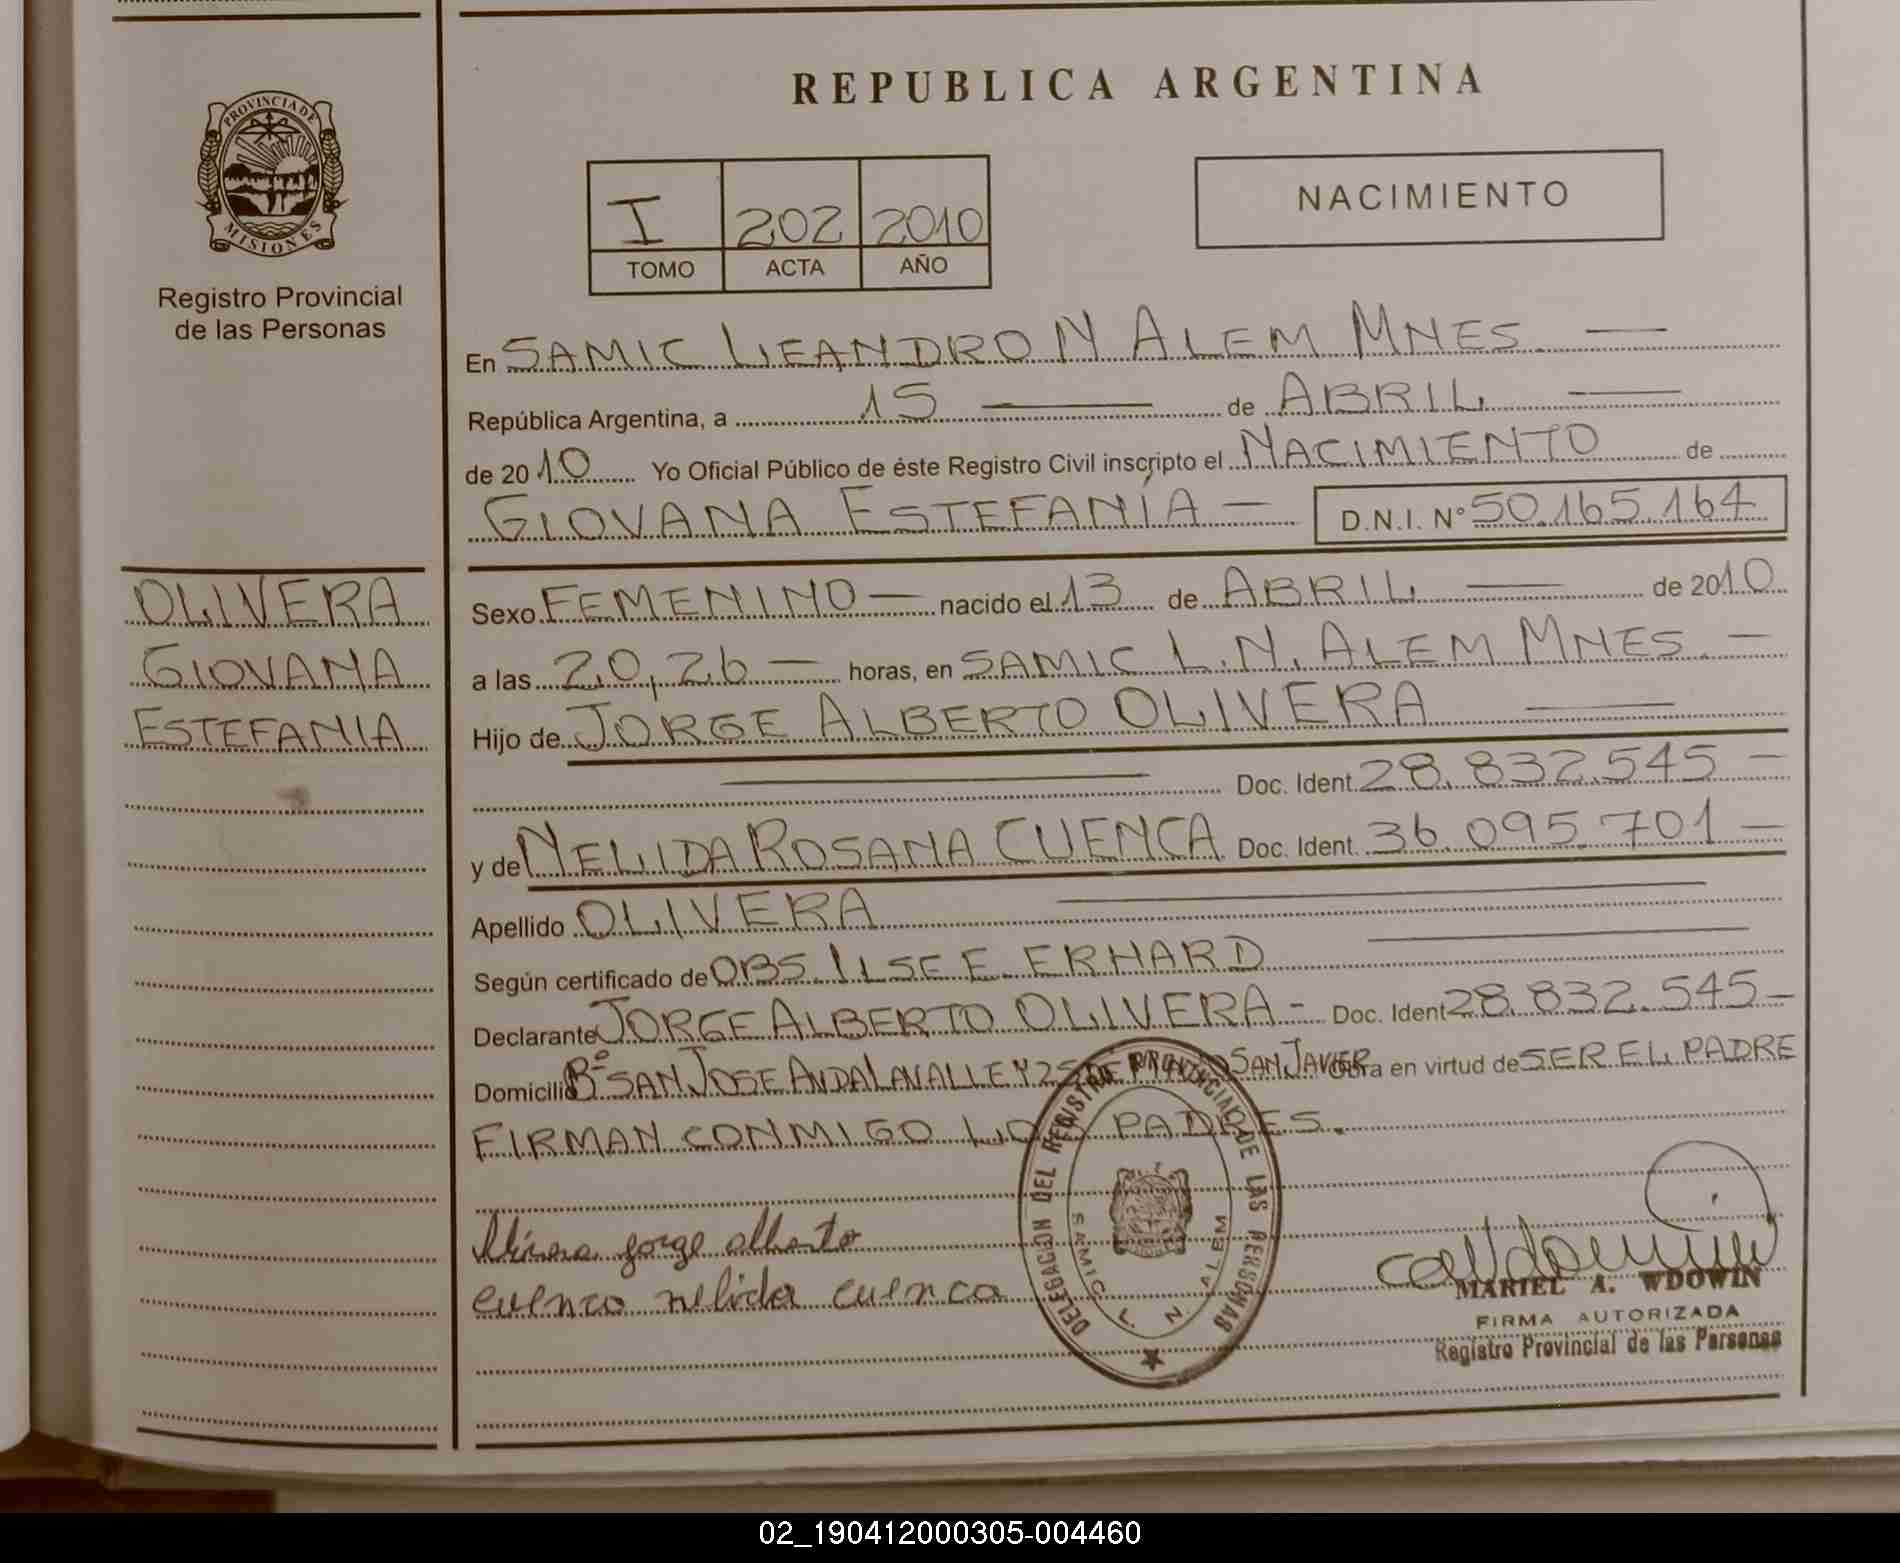 REPUBLICA ARGENTINA
PROVINCIA DE
MISIONES
Registro Provincial
de las Personas
I 202 2010
TOMO ACTA AÑO
NACIMIENTO
En SAMIC LEANDRO N ALEM MNES.
República Argentina, a 15 de ABRIL
de 2010 Yo Oficial Público de éste Registro Civil inscripto el NACIMIENTO de
GIOVANA ESTEFANÍA D.N.I. Nº 50.165.164
OLIVERA
GIOVANA
ESTEFANIA
Sexo FEMENINO nacido el 13 de ABRIL de 2010
a las 20,26 horas, en SAMIC L.N. ALEM MNES.
Hijo de JORGE ALBERTO OLIVERA
Doc. Ident. 28.832.545
y de NELIDA ROSANA CUENCA Doc. Ident. 36.095.701
Apellido OLIVERA
Según certificado de OBS. ILSE E. ERHARD
Declarante JORGE ALBERTO OLIVERA Doc. Ident 28.832.545
Domicilio Bº SAN JOSE AVDA LAVALLE Y 25 DE SAN JAVIER Obra en virtud de SER EL PADRE
FIRMAN CONMIGO LOS PADRES.
jorge alberto
cuenca nelida cuenca
DELEGACION DEL REGISTRO PROVINCIAL DE LAS PERSONAS
SAMIC L. N. ALEM
MARIEL A. WDOWIN
FIRMA AUTORIZADA
Registro Provincial de las Personas
02_190412000305-004460